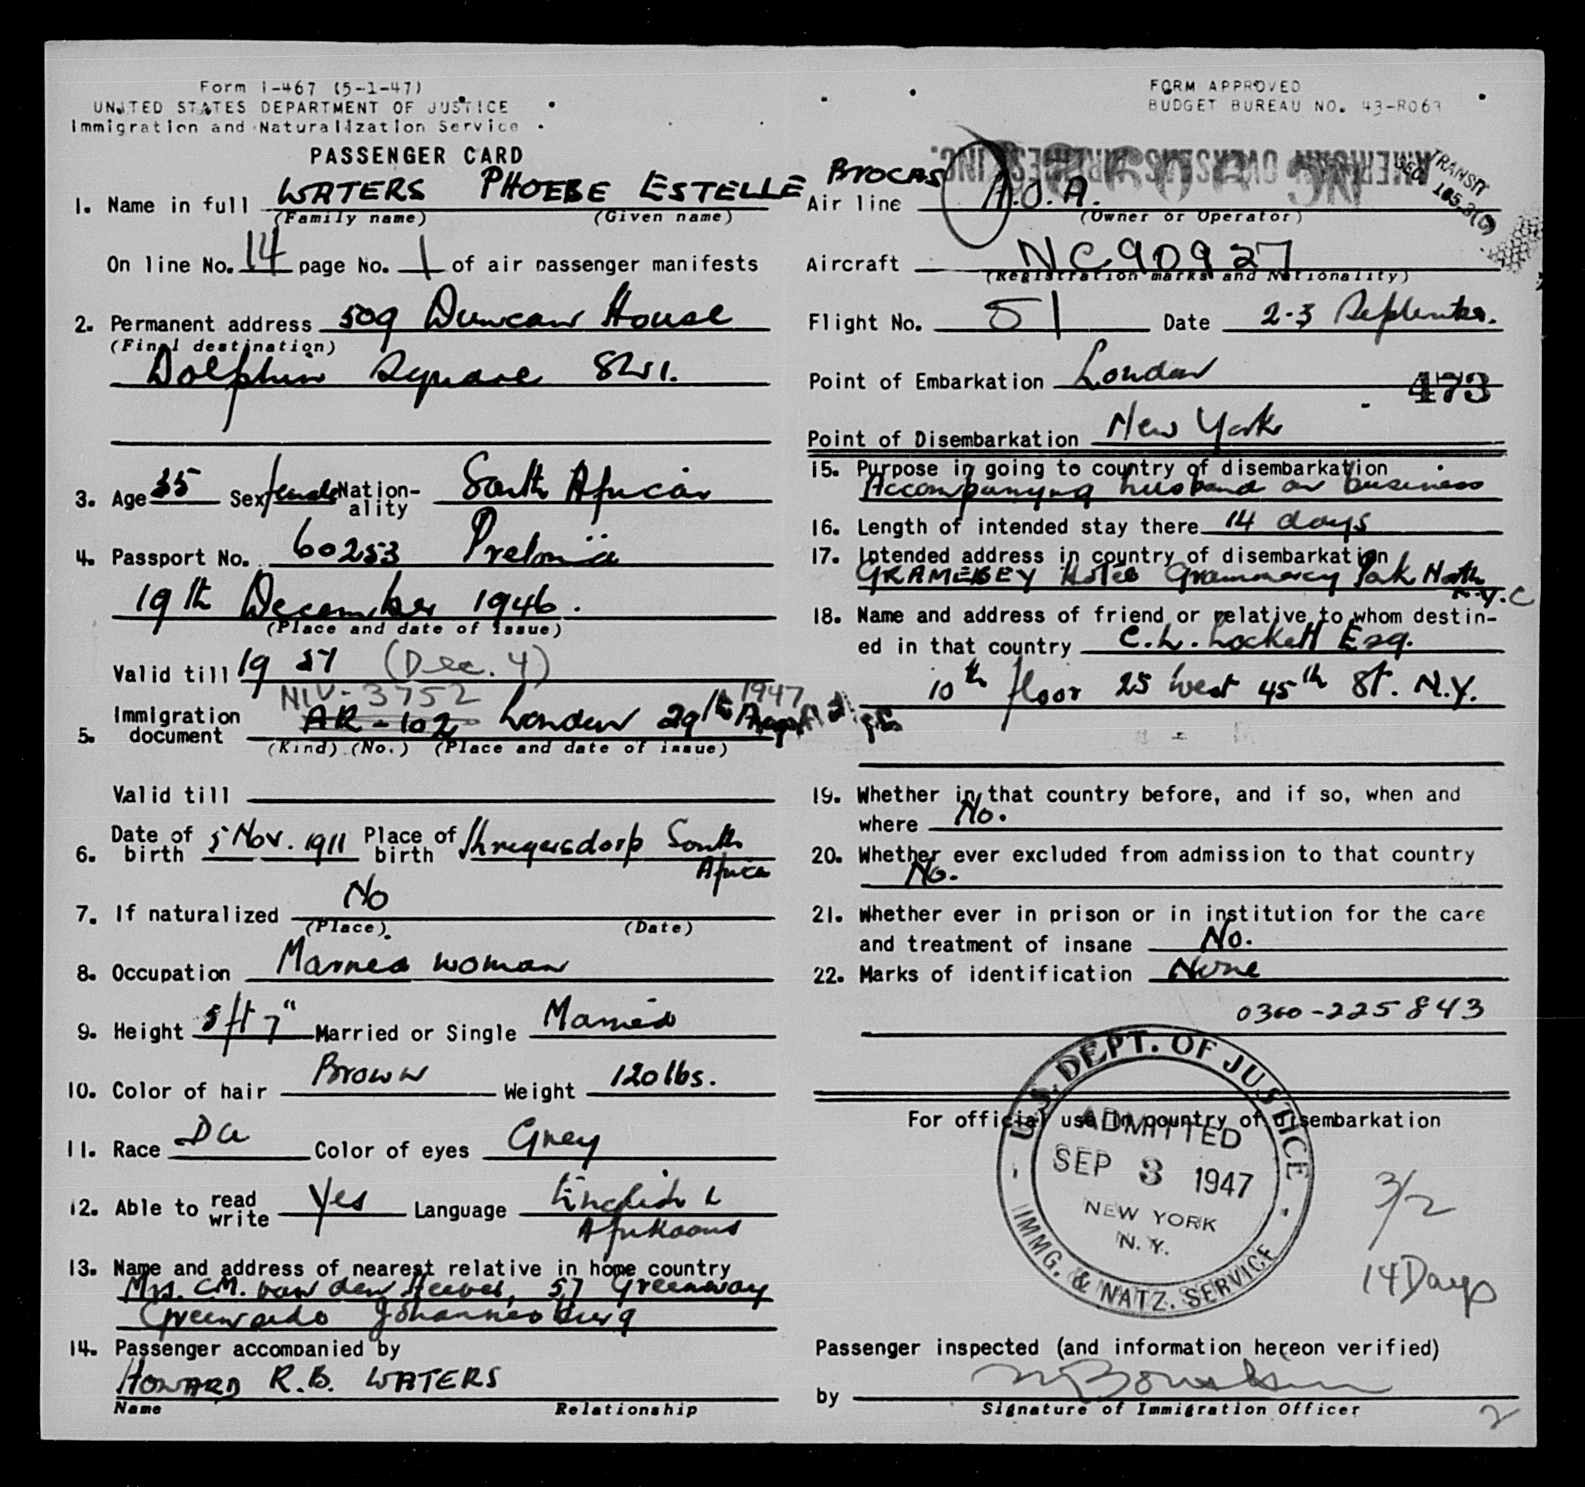 Form I-467 (5-1-47)
UNITED STATES DEPARTMENT OF JUSTICE
Immigration and Naturalization Service
PASSENGER CARD
1. Name in full WATERS PHOEBE ESTELLE BROCAS
(Family name) (Given name)
On line No. 14 page No. 1 of air passenger manifests
2. Permanent address 509 Duncan House
(Final destination)
Dolphin Square SW1.
3. Age 35 Sex female Nationality South African
4. Passport No. 60253 Pretoria
19th December 1946.
(Place and date of issue)
Valid till 1951 (Dec. 4)
NIV-3752 1947
5. Immigration document AR-102 London 29th
(Kind) (No.) (Place and date of issue)
Valid till
6. Date of birth 5 Nov. 1911 Place of birth Krugersdorp South
Africa
7. If naturalized No
(Place) (Date)
8. Occupation Married woman
9. Height 5ft 7" Married or Single Married
10. Color of hair Brown Weight 120 lbs.
11. Race Du Color of eyes Grey
12. Able to read write Yes Language English &
Afrikaans
13. Name and address of nearest relative in home country
Mrs. C.M. van den Heever, 57 Greenway
Greenside Johannesburg
14. Passenger accompanied by
HOWARD R.B. WATERS
Name Relationship
FORM APPROVED
BUDGET BUREAU NO. 43-R063
AMERICAN OVERSEAS AIRLINES, INC.
TRANSIT
SEC. 165.3(9)
Air line A.O.A.
(Owner or Operator)
Aircraft NC90927
(Registration marks and Nationality)
Flight No. 51 Date 2-3 September.
Point of Embarkation London
473
Point of Disembarkation New York
15. Purpose in going to country of disembarkation
Accompanying husband on business
16. Length of intended stay there 14 days
17. Intended address in country of disembarkation
GRAMERCY Hotel Grammercy Park North
N.Y.C
18. Name and address of friend or relative to whom destin-
ed in that country C.L. Lockett Esq.
10th floor 25 West 45th St. N.Y.
19. Whether in that country before, and if so, when and
where No.
20. Whether ever excluded from admission to that country
No.
21. Whether ever in prison or in institution for the care
and treatment of insane No.
22. Marks of identification None
0300-225843
For official use in country of disembarkation
U.S. DEPT. OF JUSTICE
ADMITTED
SEP 3 1947
NEW YORK
N.Y.
IMMG. & NATZ. SERVICE
3/2
14 Days
Passenger inspected (and information hereon verified)
by
Signature of Immigration Officer
2